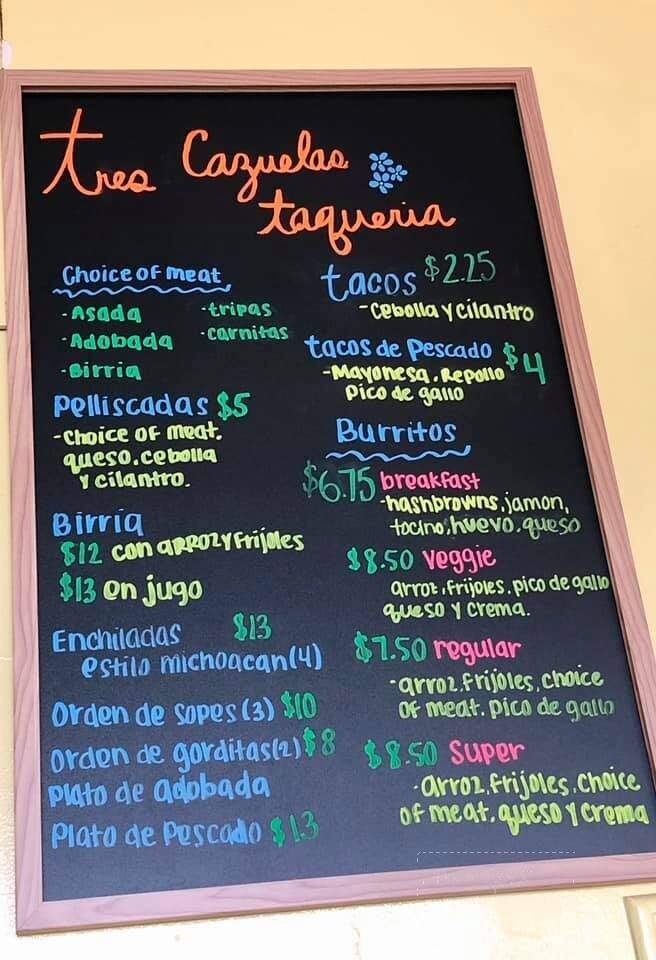 Tres Cazuelas
taqueria
Choice of meat
-Asada
-tripas
-Adobada
-carnitas
-Birria
Pelliscadas $5
-Choice of meat.
queso.cebolla
y cilantro.
Birria
$12 con arroz y frijoles
$13 en jugo
Enchiladas $13
estilo michoacan(4)
Orden de sopes (3) $10
Orden de gorditas(2) $8
plato de adobada
Plato de Pescado $13
tacos $2.25
-Cebolla y cilantro
tacos de Pescado $4
-Mayonesa, Repollo
Pico de gallo
Burritos
$6.75 breakfast
-hashbrowns, jamon,
tocino, huevo, queso
$8.50 veggie
arroz, frijoles, pico de gallo
queso y crema.
$7.50 regular
-arroz, frijoles, choice
of meat. pico de gallo
$8.50 Super
-arroz, frijoles, choice
of meat, queso y crema